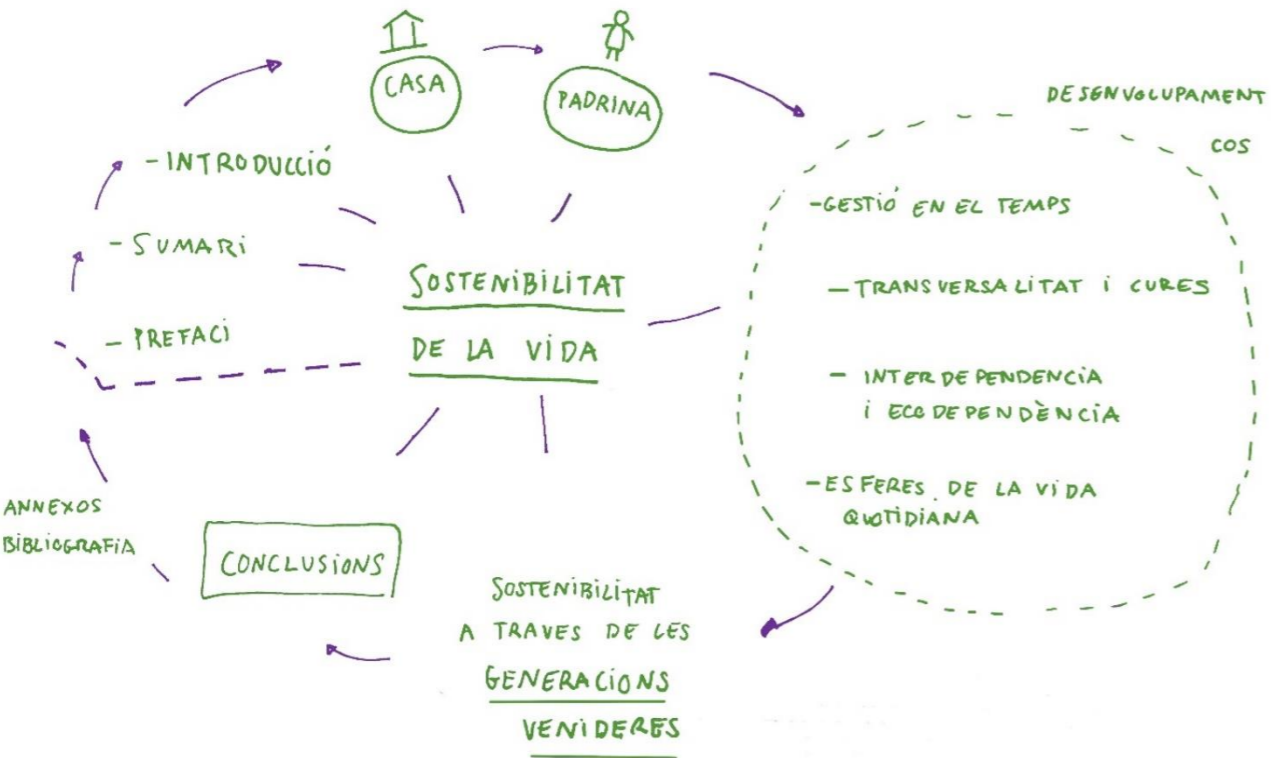 CASA
PADRINA
DESENVOLUPAMENT
COS
- INTRODUCCIÓ
- SUMARI
- PREFACI
SOSTENIBILITAT
DE LA VIDA
- GESTIÓ EN EL TEMPS
- TRANSVERSALITAT I CURES
- INTERDEPENDENCIA
I ECODEPENDÈNCIA
- ESFERES DE LA VIDA
QUOTIDIANA
ANNEXOS
BIBLIOGRAFIA
CONCLUSIONS
SOSTENIBILITAT
A TRAVES DE LES
GENERACIONS
VENIDERES